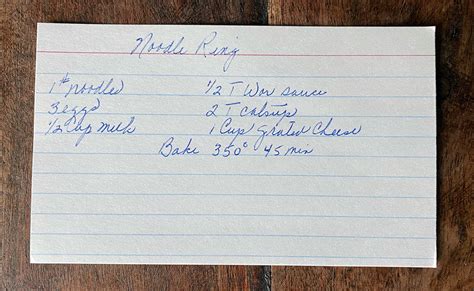 Noodle Ring
1# noodles 1/2 T Wor sauce
3 eggs 2 T catsup
1/2 Cup milk 1 Cup grated Cheese
Bake 350° 45 min